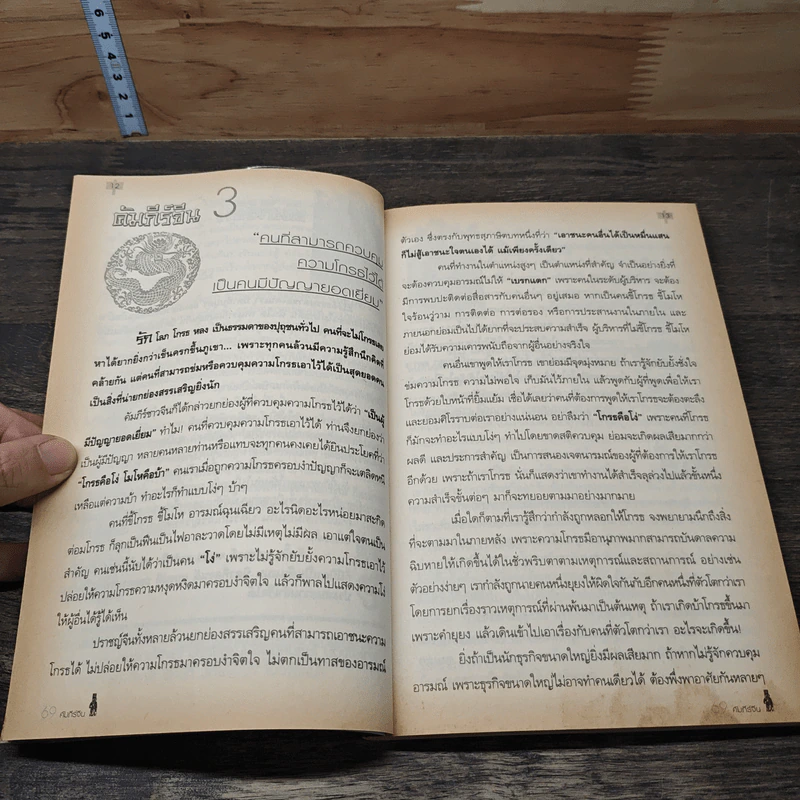 6
5
4
3
2
1
12
คัมภีร์จีน 3
"คนที่สามารถควบคุม
ความโกรธไว้ได้
เป็นคนมีปัญญายอดเยี่ยม"
รัก โลภ โกรธ หลง เป็นธรรมดาของปุถุชนทั่วไป คนที่จะไม่โกรธเลย
หาได้ยากยิ่งกว่าเข็นครกขึ้นภูเขา... เพราะทุกคนล้วนมีความรู้สึกนึกคิดที่
คล้ายกัน แต่คนที่สามารถข่มหรือควบคุมความโกรธเอาไว้ได้เป็นสุดยอดคน
เป็นสิ่งที่น่ายกย่องสรรเสริญยิ่งนัก
คัมภีร์ชาวจีนก็ได้กล่าวยกย่องผู้ที่ควบคุมความโกรธไว้ได้ว่า "เป็นผู้
มีปัญญายอดเยี่ยม" ทำไม! คนที่ควบคุมความโกรธเอาไว้ได้ ท่านจึงยกย่องว่า
เป็นผู้มีปัญญา หลายคนหลายท่านหรือแทบจะทุกคนคงเคยได้ยินประโยคที่ว่า
"โกรธคือโง่ โมโหคือบ้า" คนเราเมื่อถูกความโกรธครอบงำปัญญาก็จะเตลิดหนี
เหลือแต่ความบ้า ทำอะไรก็ทำแบบโง่ๆ บ้าๆ
คนที่ขี้โกรธ ขี้โมโห อารมณ์ฉุนเฉียว อะไรนิดอะไรหน่อยมาสะกิด
ต่อมโกรธ ก็ลุกเป็นฟืนเป็นไฟอาละวาดโดยไม่มีเหตุไม่มีผล เอาแต่ใจตนเป็น
สำคัญ คนเช่นนี้นับได้ว่าเป็นคน "โง่" เพราะไม่รู้จักยับยั้งความโกรธเอาไว้
ปล่อยให้ความโกรธความหงุดหงิดมาครอบงำจิตใจ แล้วก็พาลไปแสดงความโง่
ให้ผู้อื่นได้รู้ได้เห็น
ปราชญ์จีนทั้งหลายล้วนยกย่องสรรเสริญคนที่สามารถเอาชนะความ
โกรธได้ ไม่ปล่อยให้ความโกรธมาครอบงำจิตใจ ไม่ตกเป็นทาสของอารมณ์
69 คัมภีร์จีน
13
ตัวเอง ซึ่งตรงกับพุทธสุภาษิตบทหนึ่งที่ว่า "เอาชนะคนอื่นได้เป็นหมื่นแสน
ก็ไม่สู้เอาชนะใจตนเองได้ แม้เพียงครั้งเดียว"
คนที่ทำงานในตำแหน่งสูงๆ เป็นตำแหน่งที่สำคัญ จำเป็นอย่างยิ่งที่
จะต้องควบคุมอารมณ์ไม่ให้ "เบรกแตก" เพราะคนในระดับผู้บริหาร จะต้อง
มีการพบปะติดต่อสื่อสารกับคนอื่นๆ อยู่เสมอ หากเป็นคนขี้โกรธ ขี้โมโห
ใจร้อนวู่วาม การติดต่อ การต่อรอง หรือการประสานงานในภายใน และ
ภายนอกย่อมเป็นไปได้ยากที่จะประสบความสำเร็จ ผู้บริหารที่ไม่ขี้โกรธ ขี้โมโห
ย่อมได้รับความเคารพนับถือจากผู้อื่นอย่างจริงใจ
คนอื่นเขาพูดให้เราโกรธ เขาย่อมมีจุดมุ่งหมาย ถ้าเรารู้จักยับยั้งชั่งใจ
ข่มความโกรธ ความไม่พอใจ เก็บมันไว้ภายใน แล้วพูดกับผู้ที่พูดเพื่อให้เรา
โกรธด้วยใบหน้าที่ยิ้มแย้ม เชื่อได้เลยว่าคนที่ต้องการพูดให้เราโกรธจะต้องตะลึง
และยอมศิโรราบต่อเราอย่างแน่นอน อย่าลืมว่า "โกรธคือโง่" เพราะคนที่โกรธ
ก็มักจะทำอะไรแบบโง่ๆ ทำไปโดยขาดสติควบคุม ย่อมจะเกิดผลเสียมากกว่า
ผลดี และประการสำคัญ เป็นการสนองเจตนารมณ์ของผู้ที่ต้องการให้เราโกรธ
อีกด้วย เพราะถ้าเราโกรธ นั่นก็แสดงว่าเขาทำงานได้สำเร็จลุล่วงไปแล้วขั้นหนึ่ง
ความสำเร็จขั้นต่อๆ มาก็จะทยอยตามมาอย่างมากมาย
เมื่อใดก็ตามที่เรารู้สึกว่ากำลังถูกหลอกให้โกรธ จงพยายามนึกถึงสิ่ง
ที่จะตามมาในภายหลัง เพราะความโกรธมีอานุภาพมากสามารถบันดาลความ
ฉิบหายให้เกิดขึ้นได้ในชั่วพริบตาตามเหตุการณ์และสถานการณ์ อย่างเช่น
ตัวอย่างง่ายๆ เรากำลังถูกนายคนหนึ่งยุยงให้ผิดใจกันกับอีกคนหนึ่งที่ตัวโตกว่าเรา
โดยการยกเรื่องราวเหตุการณ์ที่ผ่านพ้นมาเป็นต้นเหตุ ถ้าเราเกิดบ้าโกรธขึ้นมา
เพราะคำยุยง แล้วเดินเข้าไปเอาเรื่องกับคนที่ตัวโตกว่าเรา อะไรจะเกิดขึ้น!
ยิ่งถ้าเป็นนักธุรกิจขนาดใหญ่ยิ่งมีผลเสียมาก ถ้าหากไม่รู้จักควบคุม
อารมณ์ เพราะธุรกิจขนาดใหญ่ไม่อาจทำคนเดียวได้ ต้องพึ่งพาอาศัยกันหลายๆ
69 คัมภีร์จีน